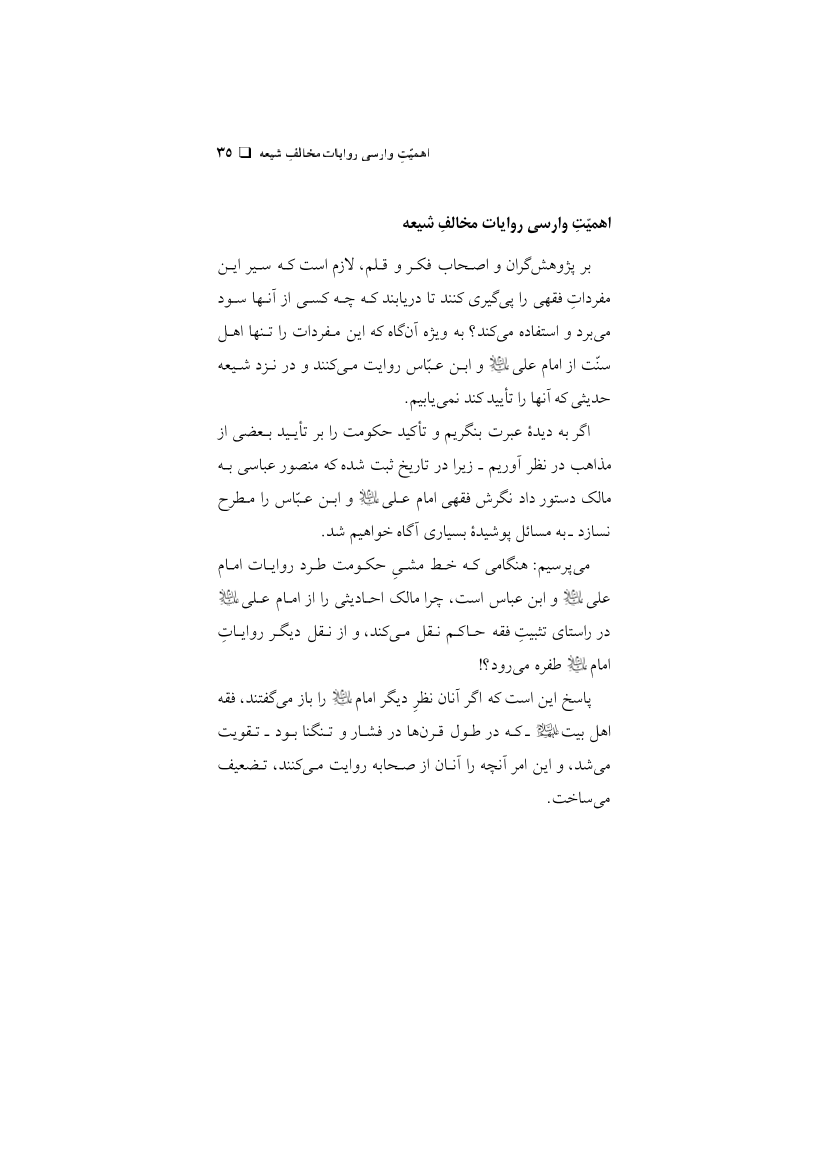 اهمیّتِ وارسی روایات مخالفِ شیعه ❑ ۳۵
اهمیّتِ وارسی روایات مخالفِ شیعه
بر پژوهش‌گران و اصحاب فکر و قلم، لازم است که سیر این
مفرداتِ فقهی را پی‌گیری کنند تا دریابند که چه کسی از آنها سود
می‌برد و استفاده می‌کند؟ به ویژه آن‌گاه که این مفردات را تنها اهل
سنّت از امام علی علیه السلام و ابن عبّاس روایت می‌کنند و در نزد شیعه
حدیثی که آنها را تأیید کند نمی‌یابیم.
اگر به دیدۀ عبرت بنگریم و تأکید حکومت را بر تأیید بعضی از
مذاهب در نظر آوریم ـ زیرا در تاریخ ثبت شده که منصور عباسی به
مالک دستور داد نگرش فقهی امام علی علیه السلام و ابن عبّاس را مطرح
نسازد ـ به مسائل پوشیدۀ بسیاری آگاه خواهیم شد.
می‌پرسیم: هنگامی که خط مشیِ حکومت طرد روایات امام
علی علیه السلام و ابن عباس است، چرا مالک احادیثی را از امام علی علیه السلام
در راستای تثبیتِ فقه حاکم نقل می‌کند، و از نقل دیگر روایاتِ
امام علیه السلام طفره می‌رود؟!
پاسخ این است که اگر آنان نظرِ دیگر امام علیه السلام را باز می‌گفتند، فقه
اهل بیت علیهم السلام ـ که در طول قرن‌ها در فشار و تنگنا بود ـ تقویت
می‌شد، و این امر آنچه را آنان از صحابه روایت می‌کنند، تضعیف
می‌ساخت.